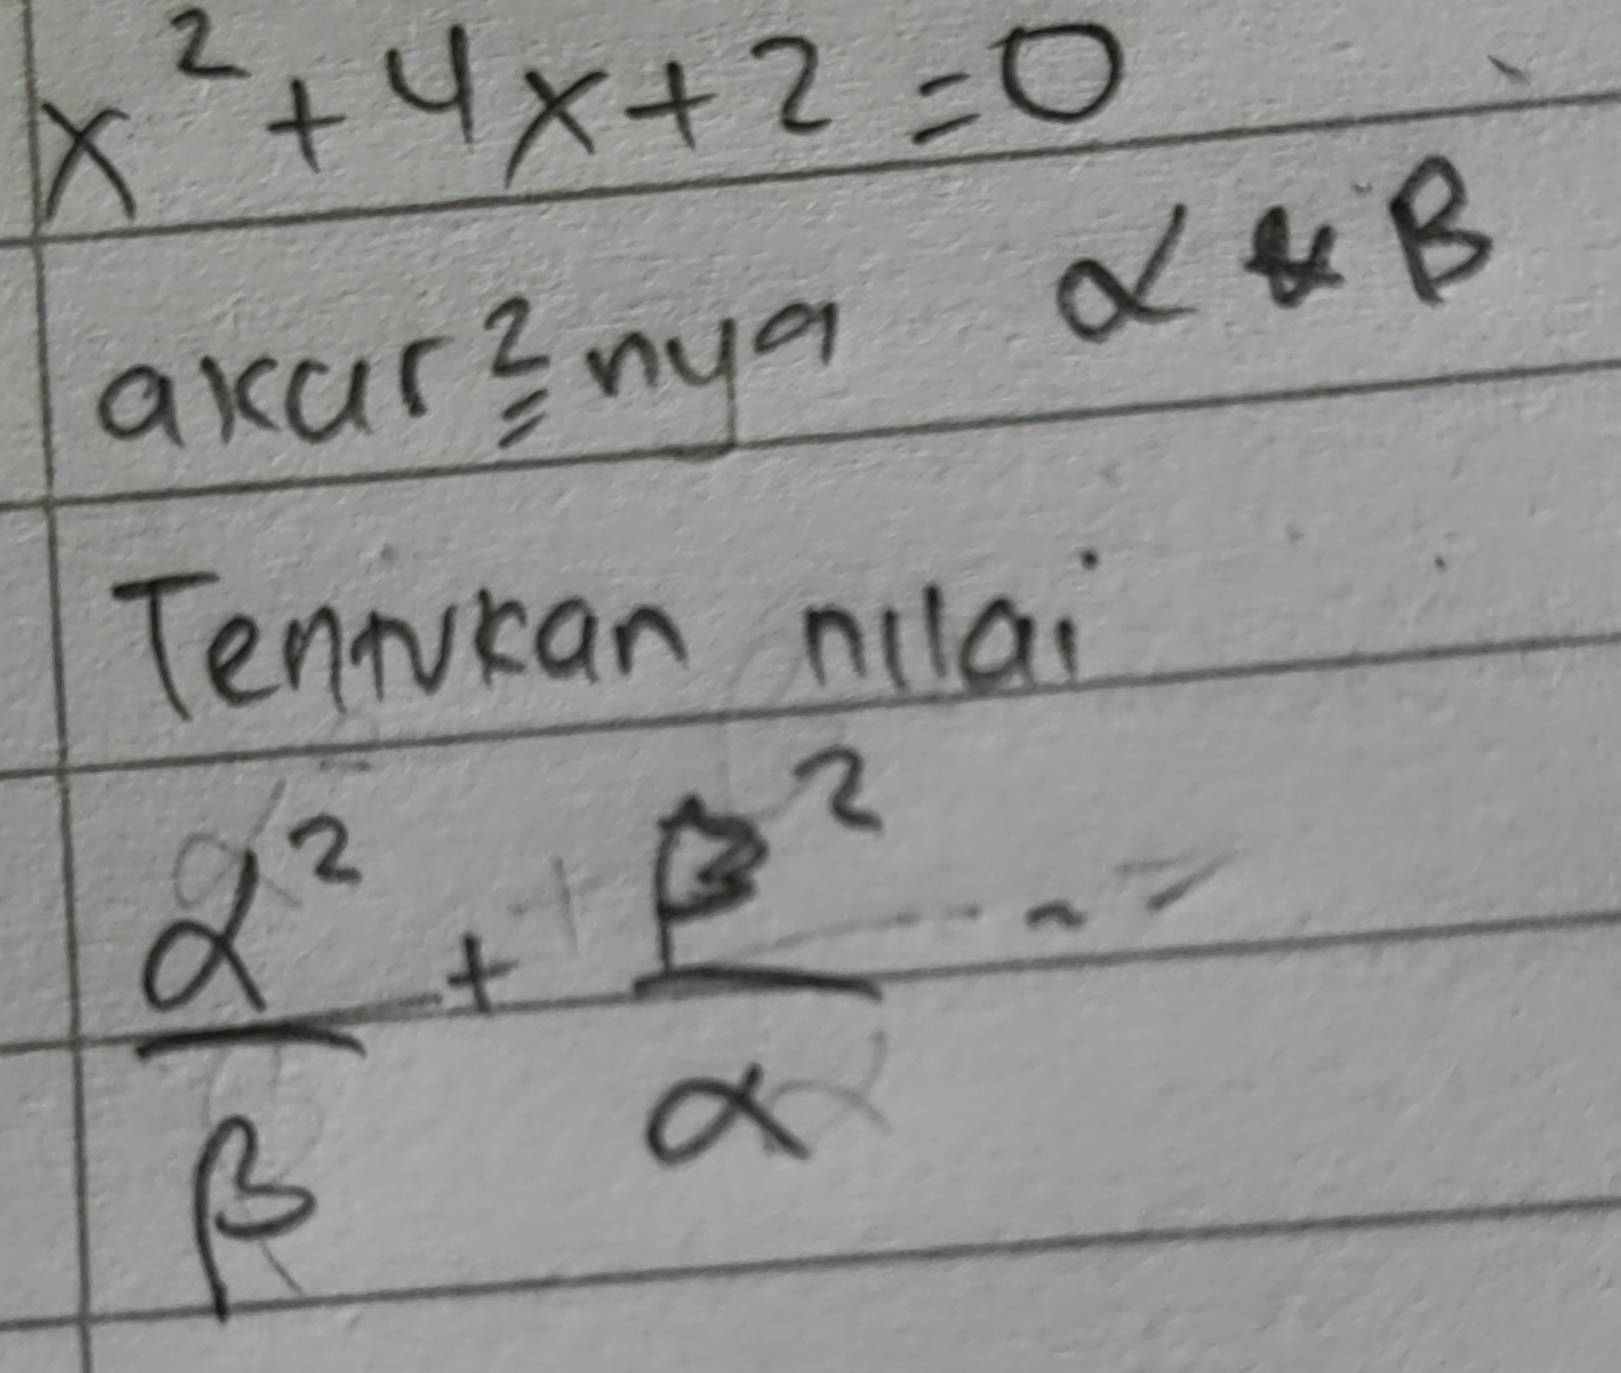 x² + 4x + 2 = 0
akar²nya α & β
Tentukan nilai
α²/β + β²/α